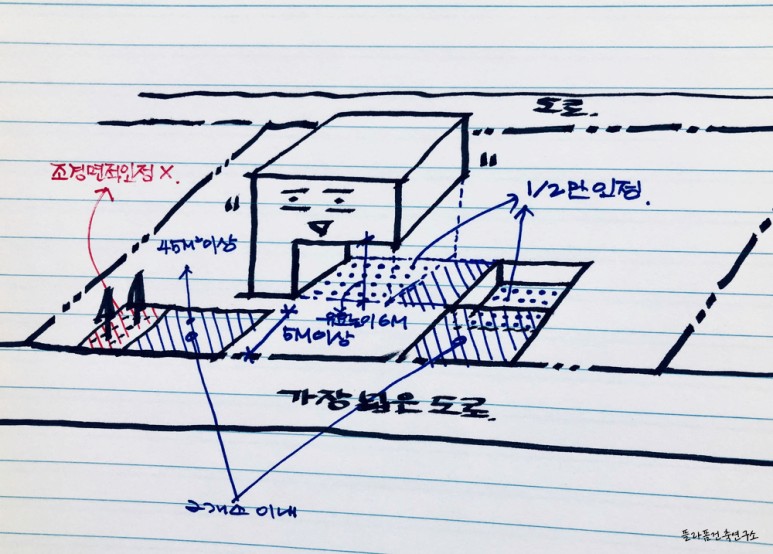 도로.
조경면적인정 X.
1/2만 인정.
45M² 이상
유효높이 6M
5M 이상
가장 넓은 도로.
2개소 이내
플라폼건축연구소